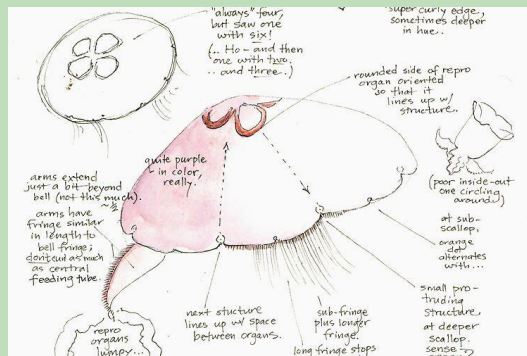 "always" four,
but saw one
with six!
(.. Ho - and then
one with two.
.. and three.)
super curly edge,
sometimes deeper
in hue..
rounded side of repro
organ oriented
so that it
lines up w/
structure..
quite purple
in color,
really.
arms extend
just a bit beyond
bell (not this much).
arms have
fringe similar
in length to
bell fringe;
don't end as much
as central
feeding tube.
(poor inside-out
one circling
around)
at sub-
scallop,
orange
dot
alternates
with...
small pro-
truding
structure,
at deeper
scallop.
sense
next stucture
lines up w/ space
between organs.
sub-fringe
plus longer
fringe.
long fringe stops
repro
organs
lumpy...